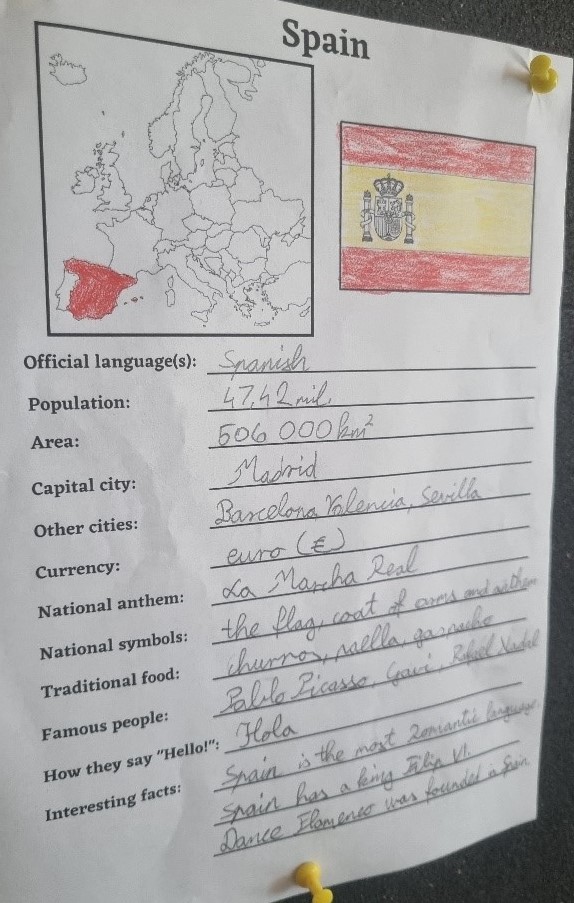 Spain
Official language(s): Spanish
Population: 47,42 mil.
Area: 506 000 km²
Capital city: Madrid
Other cities: Barcelona, Valencia, Sevilla
Currency: euro (€)
National anthem: La Marcha Real
National symbols: the flag, coat of arms and anthem
Traditional food: churros, paella, gazpacho
Famous people: Pablo Picasso, Gavi, Rafael Nadal
How they say "Hello!": Hola
Interesting facts: Spain is the most Romantic language.
Spain has a king Filip VI.
Dance Flamenco was founded in Spain